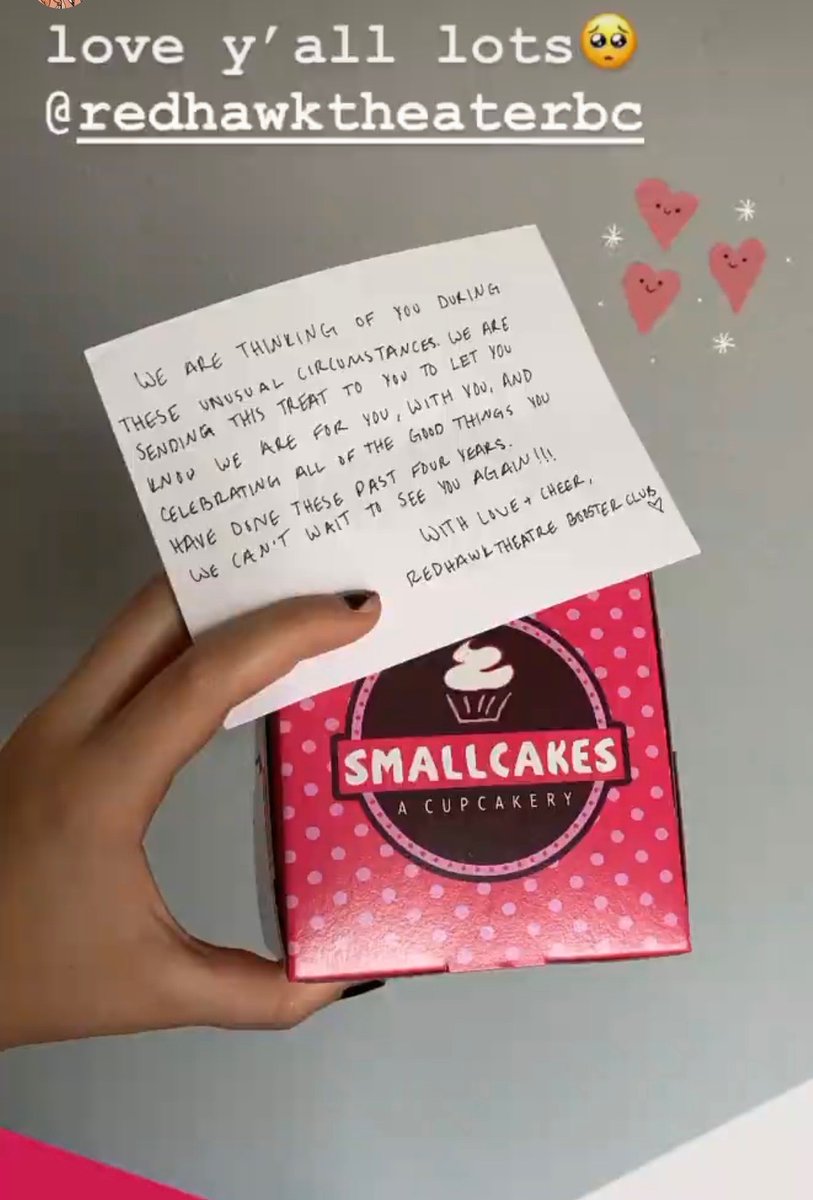 love y’all lots🥺
@redhawktheaterbc
WE ARE THINKING OF YOU DURING
THESE UNUSUAL CIRCUMSTANCES. WE ARE
SENDING THIS TREAT TO YOU TO LET YOU
KNOW WE ARE FOR YOU, WITH YOU, AND
CELEBRATING ALL OF THE GOOD THINGS YOU
HAVE DONE THESE PAST FOUR YEARS.
WE CAN'T WAIT TO SEE YOU AGAIN!!!
WITH LOVE + CHEER,
REDHAWK THEATRE BOOSTER CLUB ♡
SMALLCAKES
A CUPCAKERY